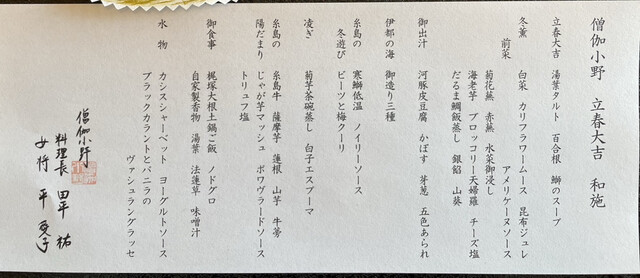 僧伽小野 立春大吉 和施
立春大吉 湯葉タルト 百合根 鰤のスープ
冬薫 白菜 カリフラワームース 昆布ジュレ
アメリケーヌソース
前菜 菊花蕪 赤蕪 水菜御浸し
海老芋 ブロッコリー天婦羅 チーズ塩
だるま鯛飯蒸し 銀餡 山葵
御出汁 河豚皮豆腐 かぼす 芽葱 五色あられ
伊都の海 御造り三種
糸島の 寒鰤低温 ノイリーソース
冬遊び ビーツと梅クーリ
凌ぎ 菊芋茶碗蒸し 白子エスプーマ
糸島の 糸島牛 薩摩芋 蓮根 山芋 牛蒡
陽だまり じゃが芋マッシュ ポワヴラードソース
トリュフ塩
御食事 梶塚大根土鍋ご飯 ノドグロ
自家製香物 湯葉 法蓮草 味噌汁
水物 カシスシャーベット ヨーグルトソース
ブラックカラントとバニラの
ヴァシュラングラッセ
僧伽小野
料理長 田平 祐
女将 平